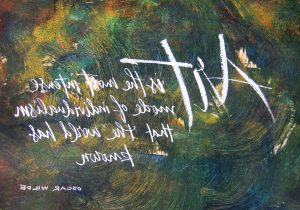 Art
is the most intense
mode of individualism
that the world has
known
OSCAR WILDE